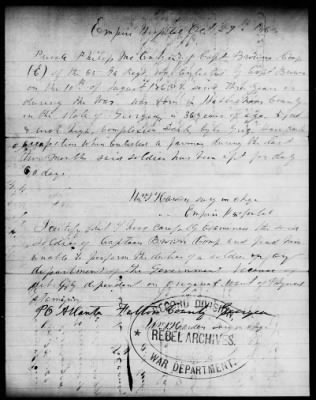 Empire Hospital Oct 27th
Private Philip McCutchen of Capt Browns Comp
(E) of the 65 Ga Regt was enlisted by Capt Brown
on the 10th of August 1863 to said three years or
during the War. was born in Habersham County
in the State of Georgia is 36 years of age 5 feet
8 inch high, complexion
occupation when enlisted a farmer during the last
two months said soldier has been unfit for duty
60 days.
Wm P Harden surg in chge
Empire Hospital
I certify that I have carefully examined the said
soldier of Captain Browns Comp and find him
unable to perform the duties of a soldier in any
department of the Government because of
debility dependent on general want of Physical
Stamina
PO Atlanta Fulton County Georgia
Wm P Harden surg in chge
RECORD DIVISION
REBEL ARCHIVES.
WAR DEPARTMENT.